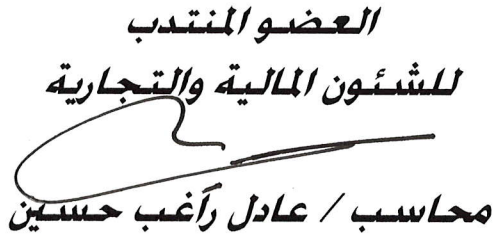 العضو المنتدب
للشئون المالية والتجارية
محاسب / عادل راغب حسين